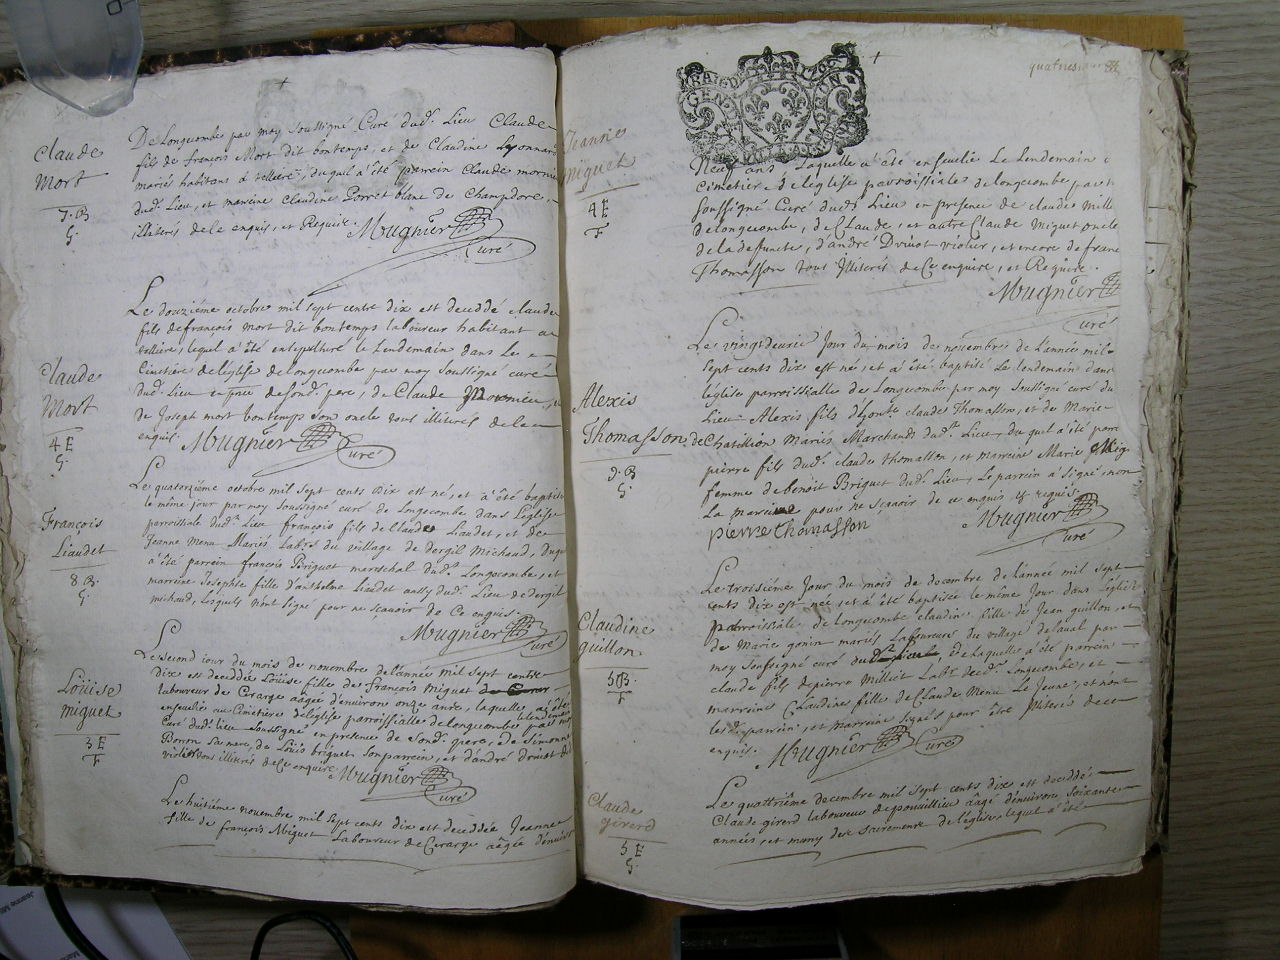 Claude
Mort
7. B
G.
De Longcombe par moy soussigné Curé dud. Lieu Claude
fils de françois Mort dit bontemps, et de Claudine Lyonnard
mariés habitans à vellierᵉ, duquel a été parrein Claude mornieu
dud. Lieu, et marreine claudine Porret blanc de Champdore,
illiterés de ce enquis, et Requis. Mugnier
Curé
Claude
Mort
4 E
G.
Le douzième octobre mil sept cents dix est decedé claude
fils de françois mort dit bontemps laboureur habitant a
velliere, lequel a été entepulturé le Lendemain dans Le
Cimetiere de l'eglise de longecombe par moy soussigné curé
dud. Lieu en pñce de sond. pere, de Claude Mornieu, et
de Joseph mort bontemps son oncle tous illiterés de ce
enquis. Mugnier Curé
françois
Liaudet
8 B.
G.
Le quatorzième octobre mil sept cents dix est né, et a été baptisé
le même jour par moy soussigné curé de Longecombe dans L'eglise
parroissiale dud. Lieu françois fils de Claude Liaudet, et de
Jeanne Menu Mariés Labrs du village de dergil Michaud, duquel
a été parrein françois Briguet mareschal dud. Longecombe, et
marreine Josephte fille d'anthelme liaudet aussy dud. Lieu de dergil
michaud, lesquels n'ont signé pour ne sçavoir de Ce enquis.
Mugnier Curé
Loüise
miguet
3 E
F
Le second jour du mois de novembre de l'année mil sept cents
dix est decedée Loüise fille de françois miguet
laboureur de Cerarge aagée d'environ onze ans, laquelle a été
ensevelie au Cimetiere de l'eglise parroissiale de longecombe par moy
Curé dud. lieu soussigné en presence de sond. pere, de Simonne
Borron sa mere, de Loüis briguet son parrein, et d'andré druot du
violier tous illiterés de Ce enquis. Mugnier
Curé
Le huitième novembre mil sept cents dix est decedée Jeanne
fille de françois Miguet Laboureur de Cerarge aagée d'environ
GEN
Jeanne
miguet
4 E
F
Neuf ans Laquelle a été ensevelie Le Lendemain
Cimetiere de l'eglise parroissiale de longecombe par
soussigné Curé dud. Lieu en presence de claude Mill
de longecombe, de Claude, et autre Claude Miguet oncle
de la deffuncte, d'andré Druot violier, et encore de franc
Thomasson tous Illiterés de Ce enquis, et Requis.
Mugnier
Curé
Alexis
Thomasson
9. B
G.
Le vingtdeuxie Jour du mois de novembre de L'année mil
sept cents dix est né, et a été baptisé Le lendemain dans
l'eglise parroissialle de Longecombe par moy soussigné curé du
Lieu Alexis fils claude Thomasson, et de Marie
de Chatillion Mariés Marchands dud. Lieu, du quel a été parr
pierre fils dud. claude thomasson, et marreine Marie Mig
femme de benoit Briguet dud. Lieu, Le parrein a signé, non
La marreine pour ne sçavoir de ce enquis, et requis.
pierre thomasson Mugnier
Curé
Claudine
guillon
5 B.
F
Le troisième Jour du mois de decembre de l'année mil sept
cents dix est née, et a été baptisée le même Jour dans L'eglise
parroissiale de longecombe claudine fille de Jean guillon, et
de Marie gonin mariés Laboureurs du village de laval par
moy soussigné curé dud. de Laquelle a été parrein
claude fils de pierre Milliet Labr dud. Longecombe, et
marreine Claudine fille de Claude Menu Le Jeune, et n'ont
lesd. parrein, et marreine signés pour être Illiterés de ce
enquis. Mugnier Curé
Claude
girerd
5 E
G.
Le quattrième decembre mil sept cents dix est decedé
Claude girerd laboureur aâgé d'environ soixante
années, et muny des sacremens de l'eglise, lequel a été